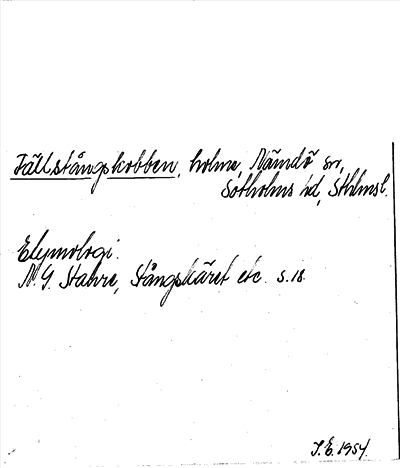 Fällstångskobben, holme, Nämdö sn,
Sotholms hd, Sthlmsl.
Etymologi.
N. G. Stahre, Stångskäret etc. s. 18.
J. E. 1954.